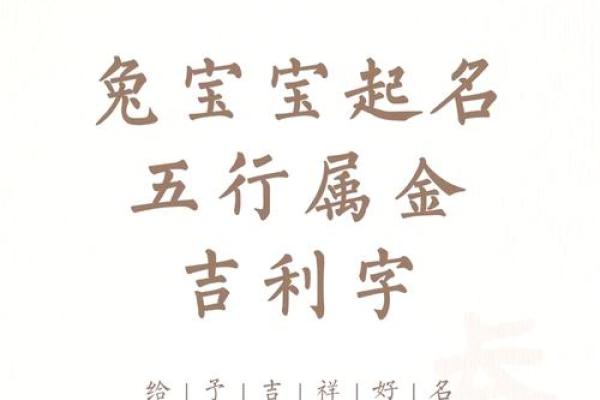 兔宝宝起名
五行属金
吉利字
给|予|吉|祥|好|名